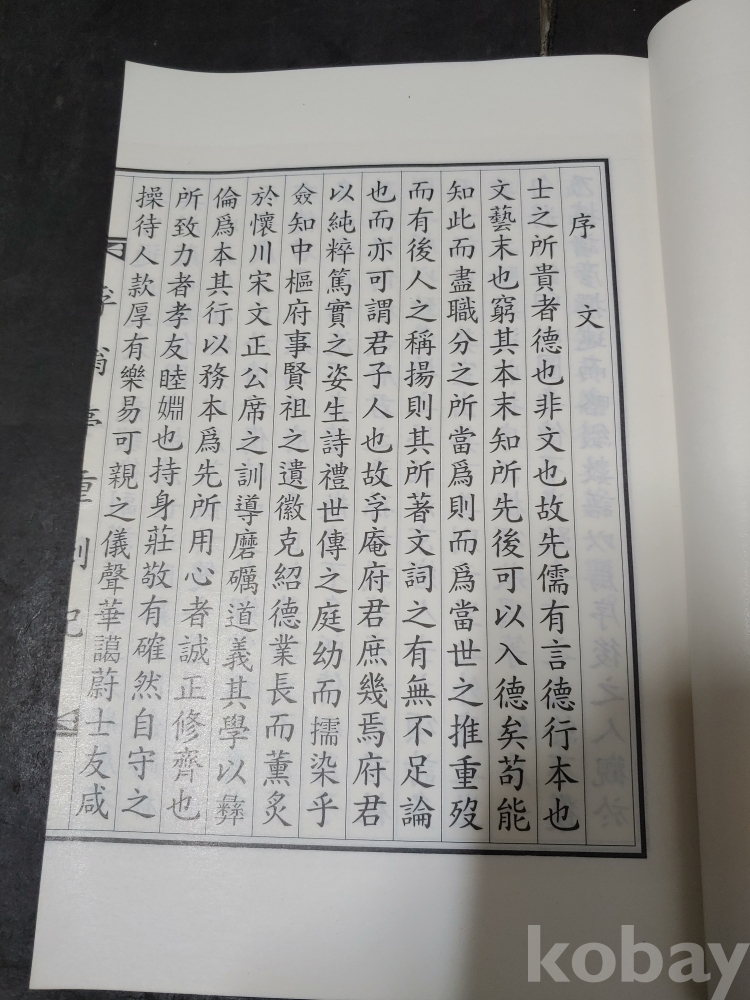 序文
士之所貴者德也非文也故先儒有言德行本也
文藝末也窮其本末知所先後可以入德矣苟能
知此而盡職分之所當爲則而爲當世之推重歿
而有後人之稱揚則其所著文詞之有無不足論
也而亦可謂君子人也故孚庵府君庶幾焉府君
以純粹篤實之姿生詩禮世傳之庭幼而擩染乎
僉知中樞府事賢祖之遺徽克紹德業長而薰炙
於懷川宋文正公席之訓導磨礪道義其學以彝
倫爲本其行以務本爲先所用心者誠正修齊也
所致力者孝友睦婣也持身莊敬有確然自守之
操待人款厚有樂易可親之儀聲華藹蔚士友咸
kobay